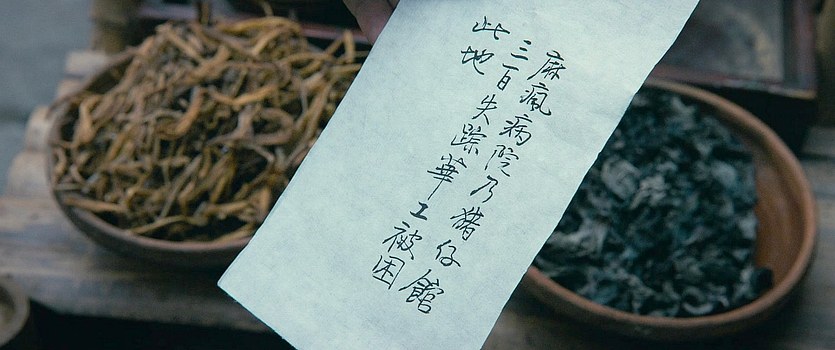 麻瘋病院乃猪仔館
三百失踪華工被困
此地